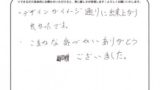 ・デザインがイメージ通りに出来上がり
良かったです。
・こまかな気づかいありがとう
ございました。